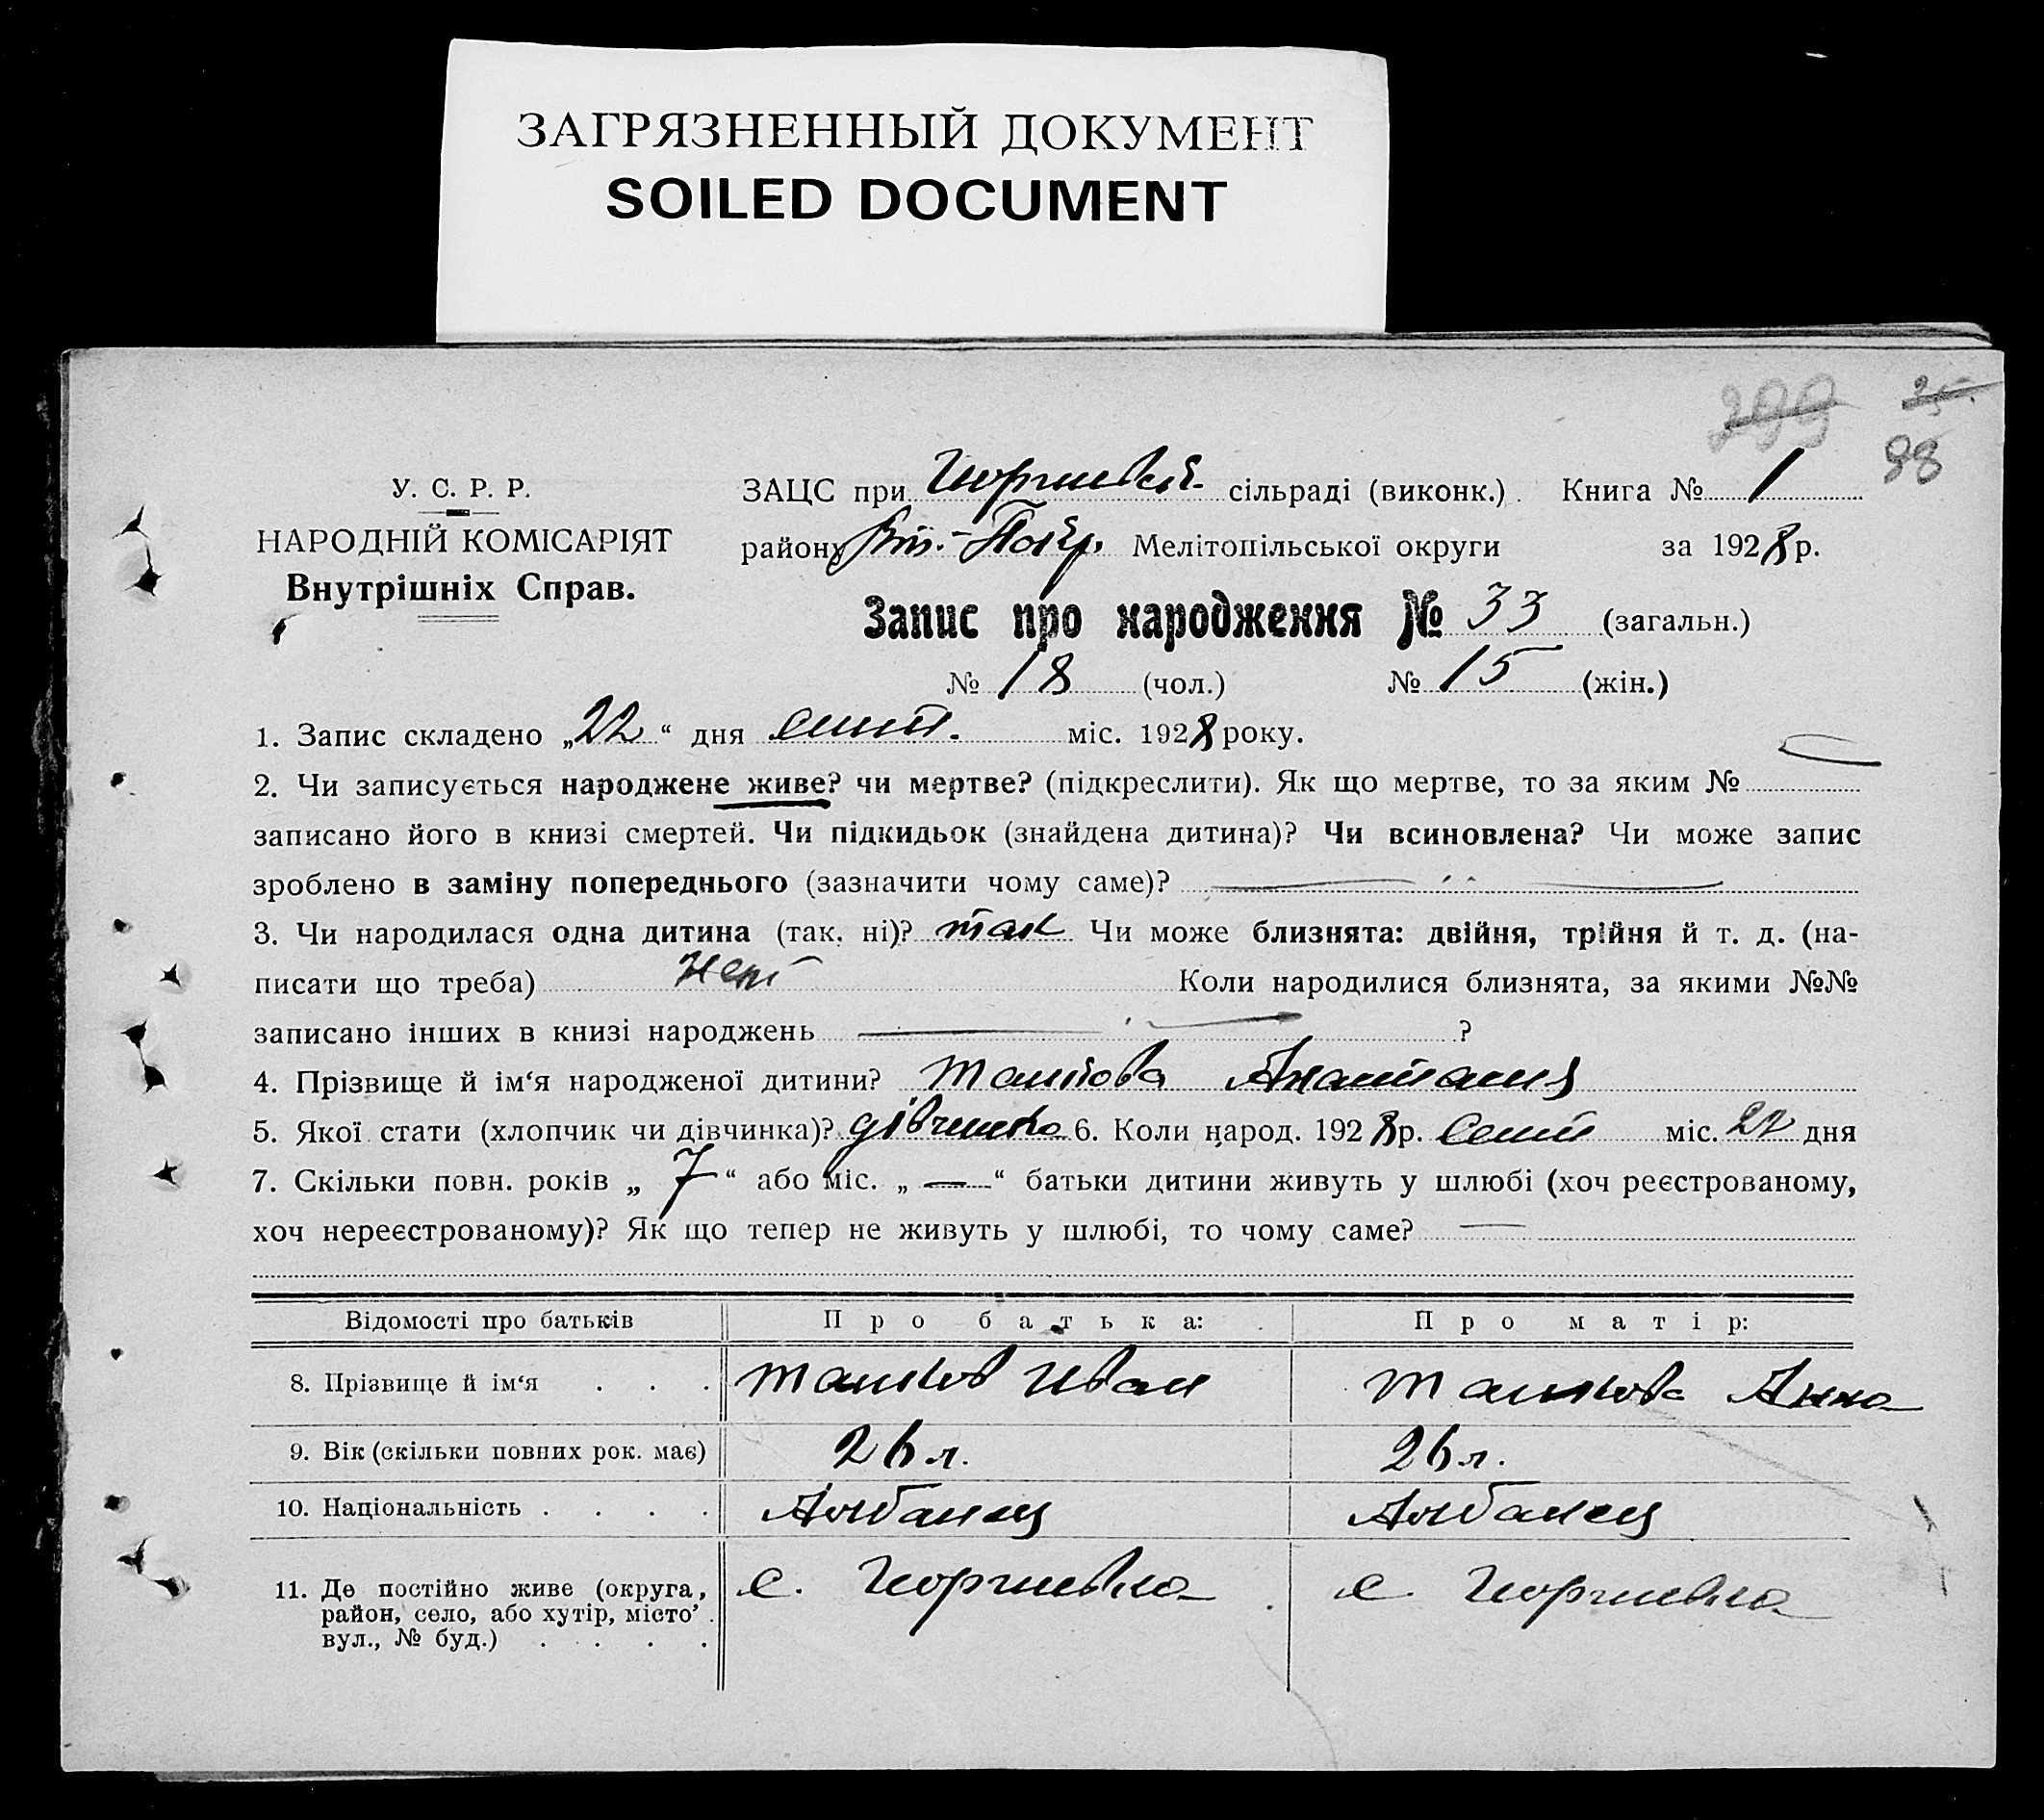 ЗАГРЯЗНЕННЫЙ ДОКУМЕНТ
SOILED DOCUMENT
299 25.
98
У. С. Р. Р.
НАРОДНІЙ КОМІСАРІЯТ
Внутрішніх Справ.
ЗАЦС при сільраді (виконк.). Книга № 1
району Мелітопільської округи за 1928 р.
Запис про народження № 33 (загальн.)
№ 18 (чол.) № 15 (жін.)
1. Запис складено „22“ дня Сент. міс. 1928 року.
2. Чи записується народжене живе? чи мертве? (підкреслити). Як що мертве, то за яким №
записано його в книзі смертей. Чи підкидьок (знайдена дитина)? Чи всиновлена? Чи може запис
зроблено в заміну попереднього (зазначити чому саме)?
3. Чи народилася одна дитина (так, ні)? так Чи може близнята: двійня, трійня й т. д. (на-
писати що треба) Нет Коли народилися близнята, за якими №№
записано інших в книзі народжень ?
4. Прізвище й ім‘я народженої дитини? Ташкова
5. Якої стати (хлопчик чи дівчинка)? дівчинка 6. Коли народ. 1928 р. Сент міс. 22 дня
7. Скільки повн. років „ 7 “ або міс. „ — “ батьки дитини живуть у шлюбі (хоч реєстрованому,
хоч нереєстрованому)? Як що тепер не живуть у шлюбі, то чому саме? —
Відомості про батьків Про батька: Про матір:
8. Прізвище й ім‘я . . . Ташков Иван Ташкова Анна
9. Вік (скільки повних рок. має) 26 л. 26 л.
10. Національність . . . . Албанец Албанец
11. Де постійно живе (округа, с. Георгиевка с. Георгиевка
район, село, або хутір, місто’ .
вул., № буд.) . . . .